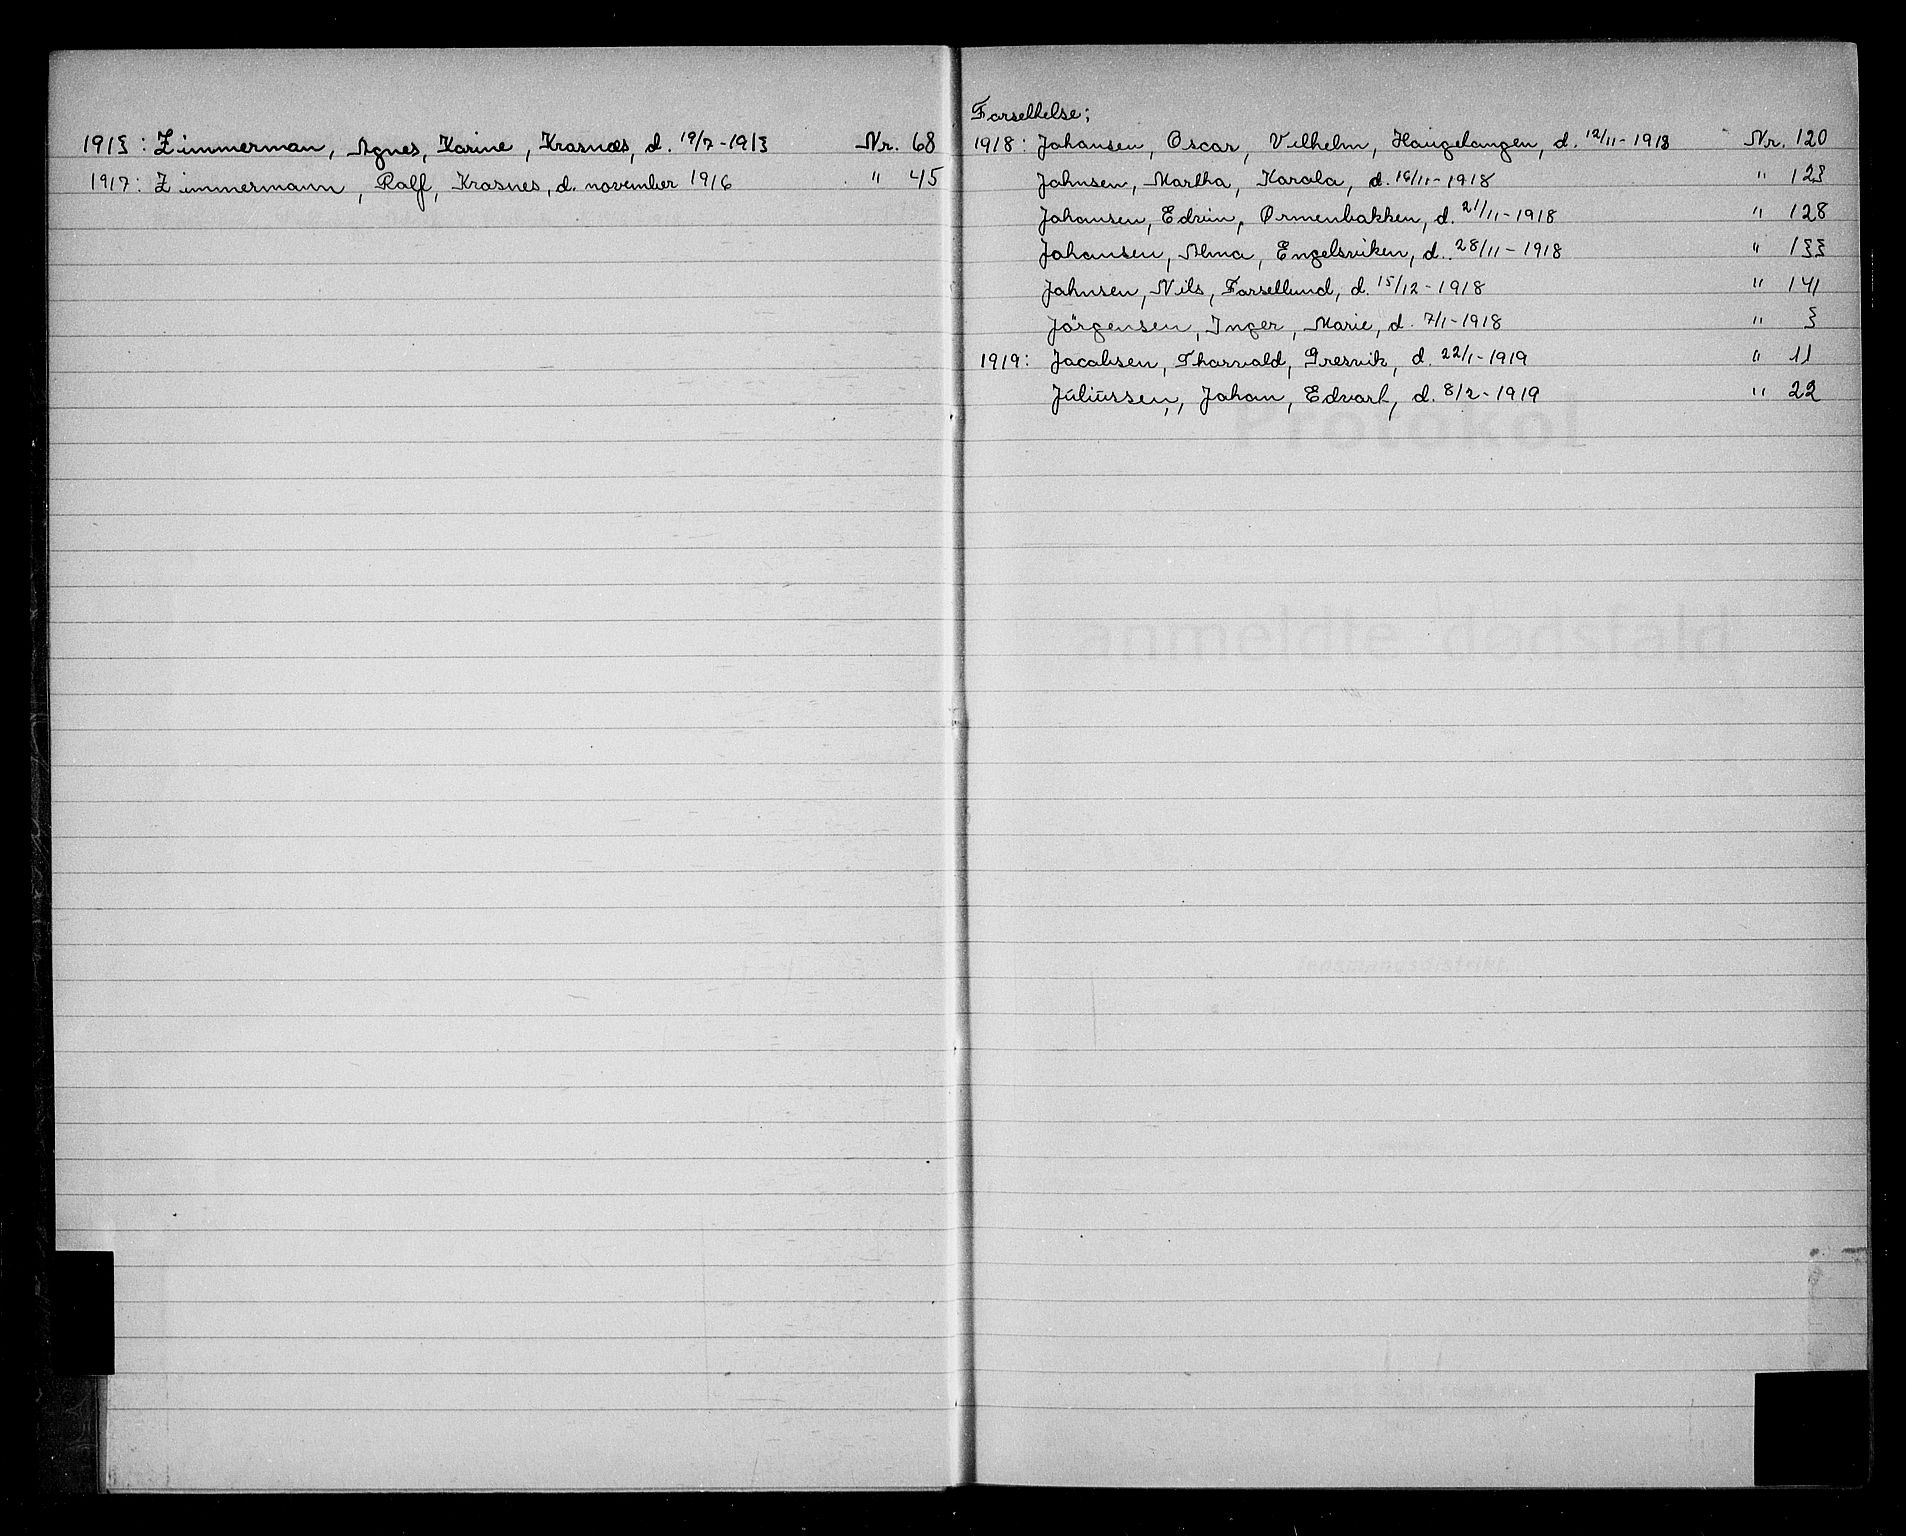 1913: Zimmerman, Agnes, Karine, Krasnæs, d. 19/7-1913 Nr. 68
1917: Zimmermann, Ralf, Krasnes, d. november 1916 " 45
Forsettelse;
1918: Johansen, Oscar, Vilhelm, Haugelangen, d. 12/11-1918 Nr. 120
Johnsen, Martha, Karola, d. 16/11-1918 " 123
Johansen, Edvin, Ormenbakken, d. 21/11-1918 " 128
Johansen, Alma, Engelsviken, d. 28/11-1918 " 133
Johnsen, Nils, Forsetlund, d. 15/12-1918 " 141
Jörgensen, Inger, Marie, d. 7/1-1918 " 3
1919: Jacobsen, Thorvald, Gresvik, d. 22/1-1919 " 11
Juliussen, Johan, Edvart, d. 8/2-1919 " 22
Protokol
anmeldte dødsfald
lensmannsdistrikt